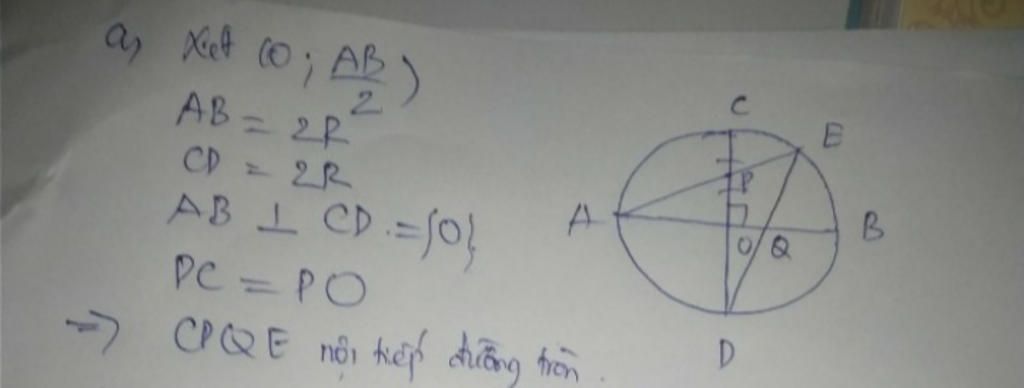 a, Xét (O; AB/2)
AB = 2R
CD = 2R
AB ⊥ CD = {O}
PC = PO
=> CPQE nội tiếp đường tròn.
C
E
P
A
B
O
Q
D